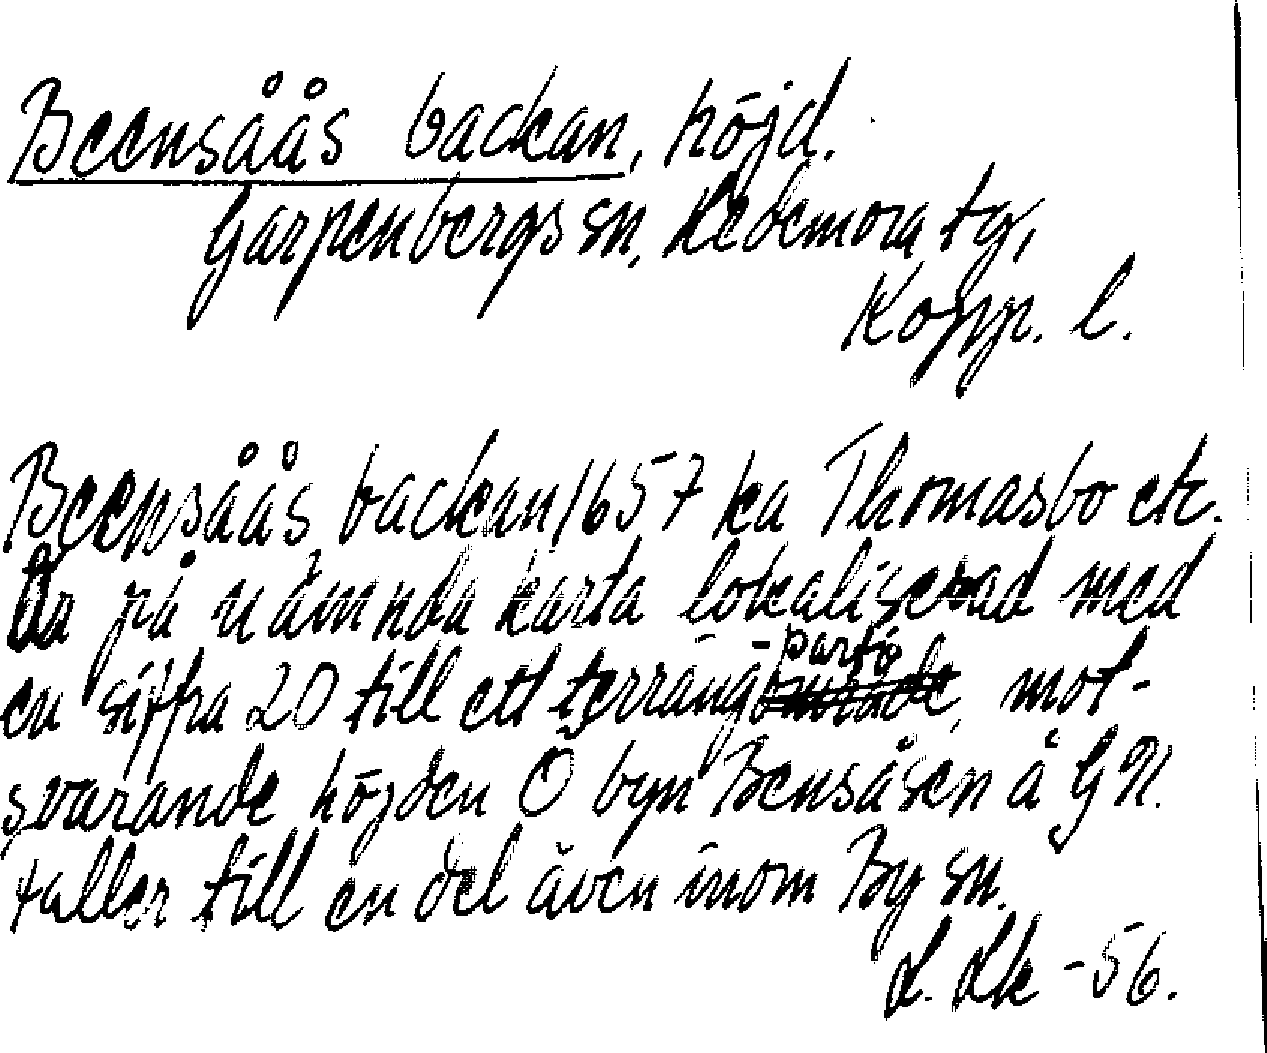 Beensåås backan, höjd.
Garpenbergs sn, Hedemora tg,
Kopp. l.
Beensåås backan 1657 ka Thomasbo etc.
Är på nämnda karta lokaliserad med
en siffra 20 till ett terräng-parti, mot-
svarande höjden Ö byn Bensåsen å GK.
Faller till en del även inom By sn.
L. Lk -56.